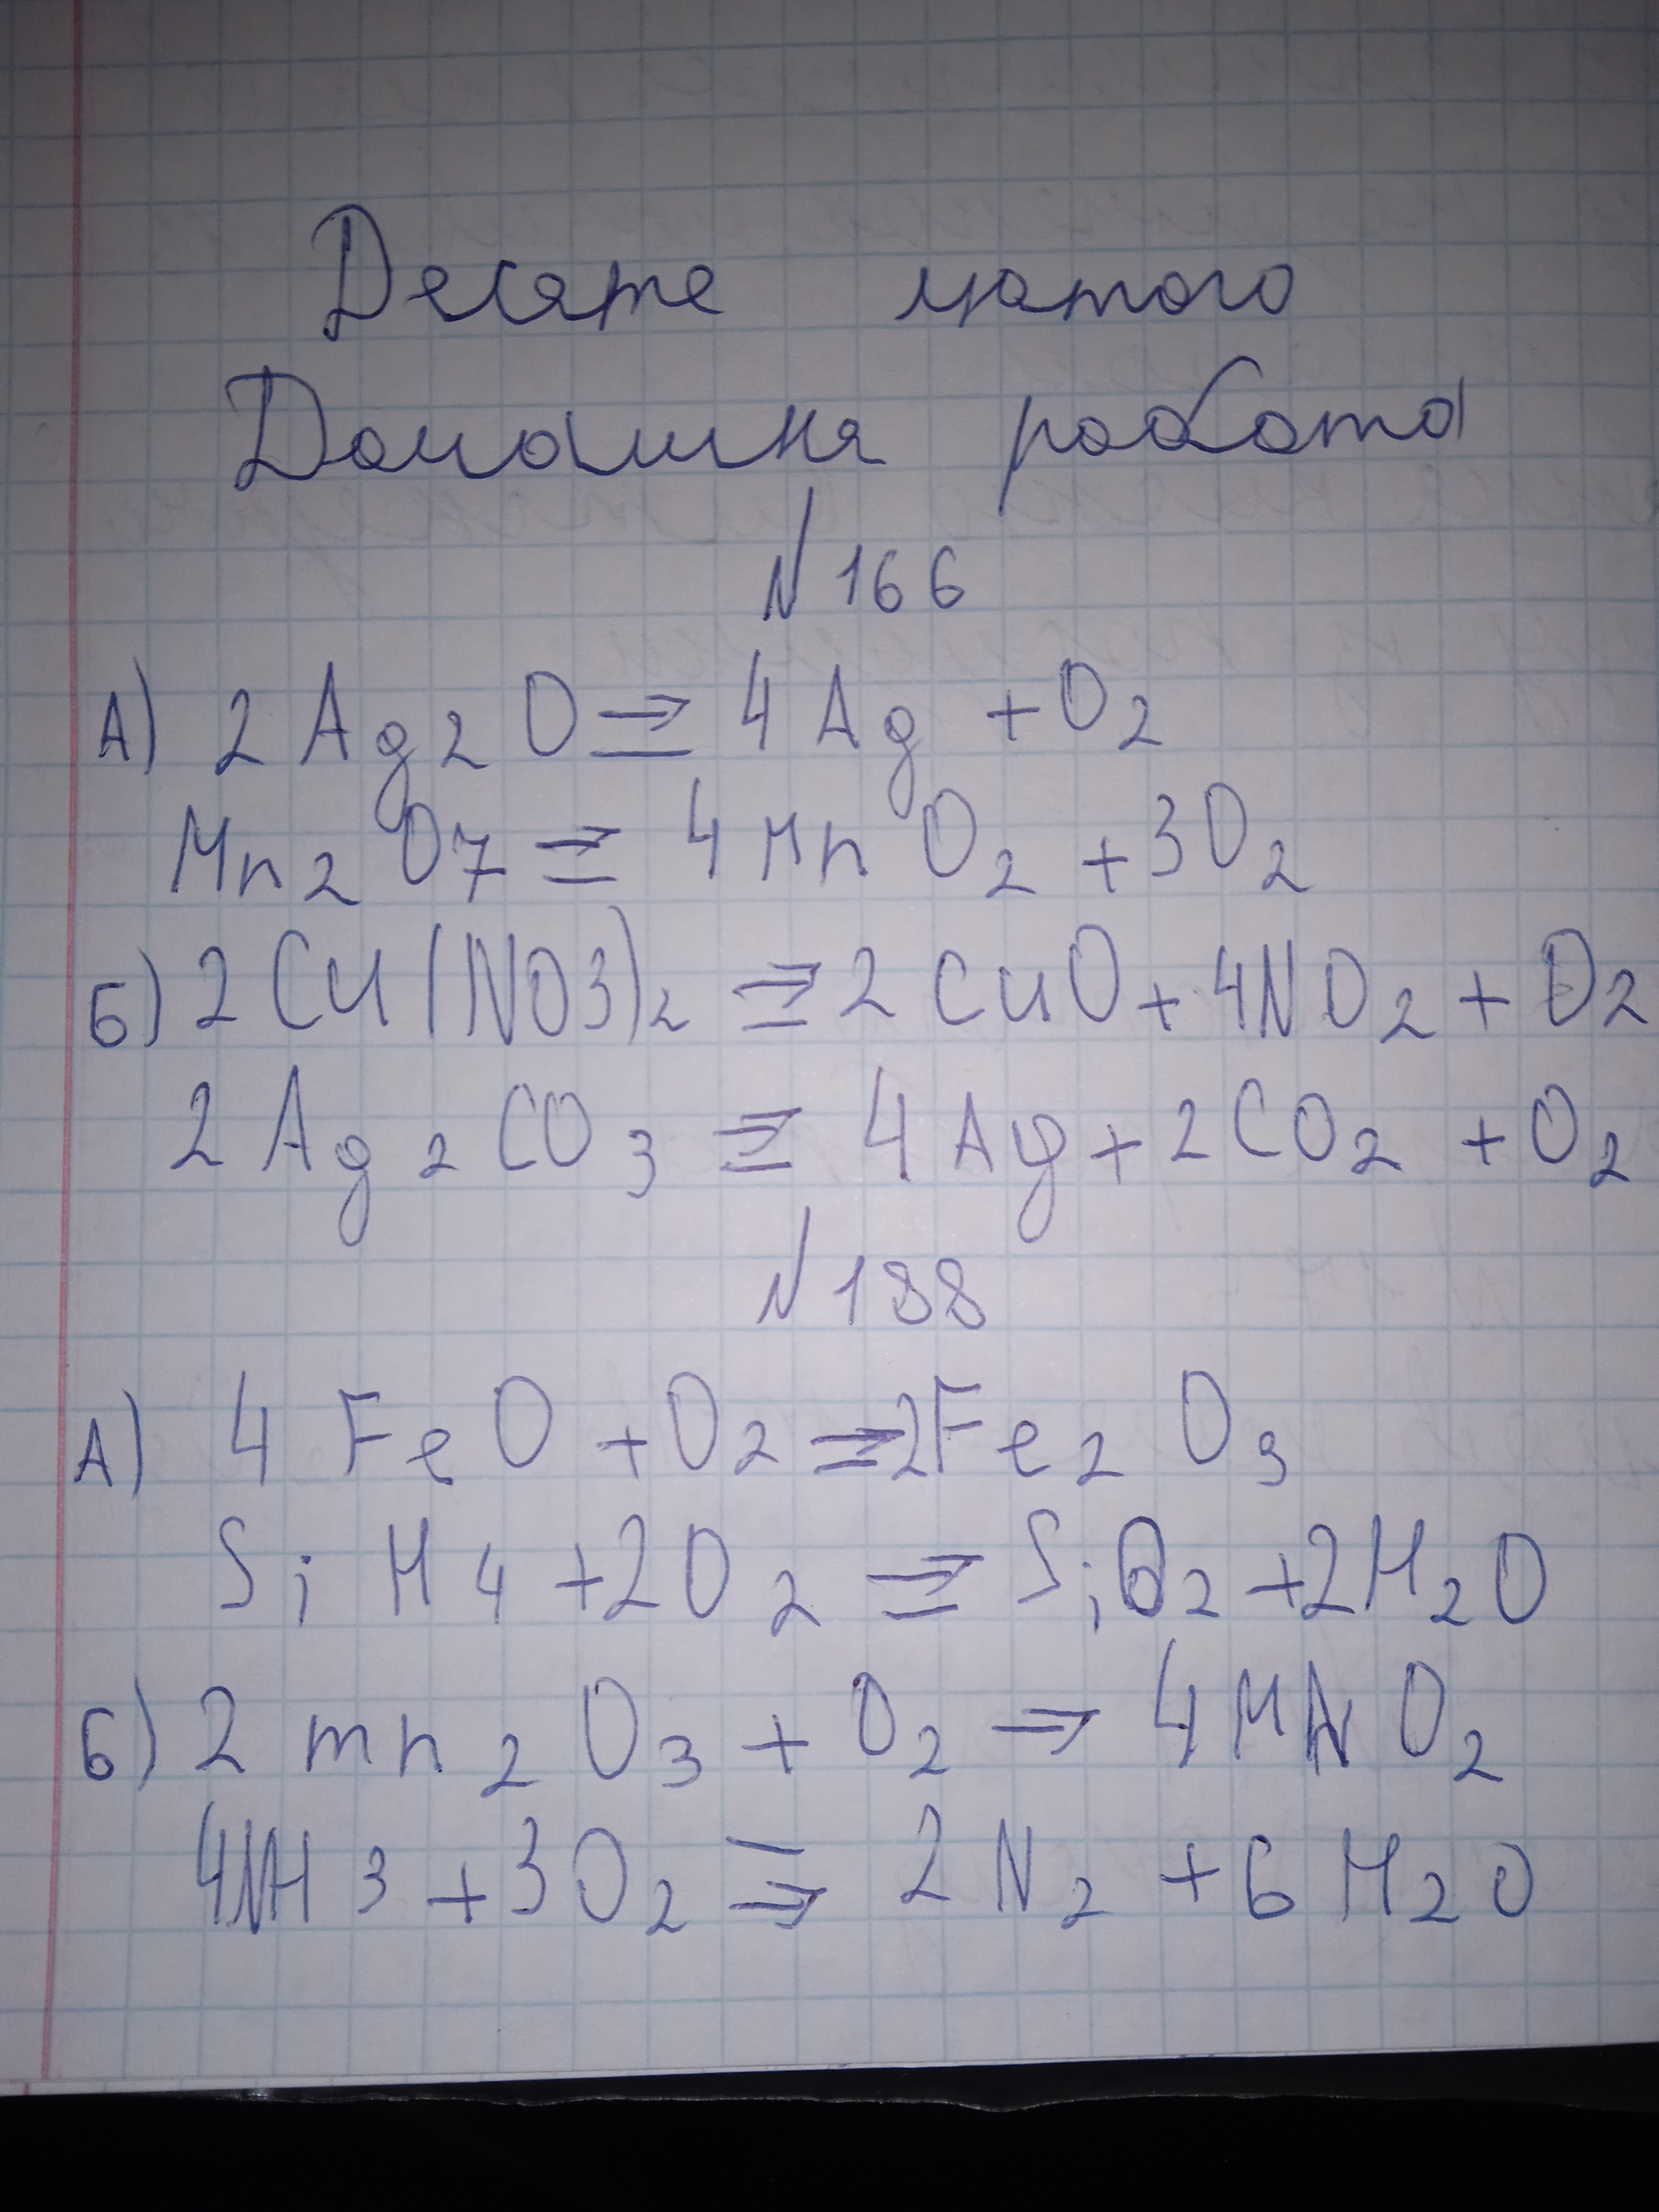 Десяте лютого
Домашня робота
№166
А) 2Ag₂O ⇒ 4Ag + O₂
Mn₂O₇ ⇒ 4MnO₂ + 3O₂
Б) 2Cu(NO3)₂ ⇒ 2CuO + 4NO₂ + O₂
2Ag₂CO₃ ⇒ 4Ag + 2CO₂ + O₂
№188
А) 4FeO + O₂ ⇒ 2Fe₂O₃
SiH₄ + 2O₂ ⇒ SiO₂ + 2H₂O
Б) 2mn₂O₃ + O₂ ⇒ 4MnO₂
4NH₃ + 3O₂ ⇒ 2N₂ + 6H₂O